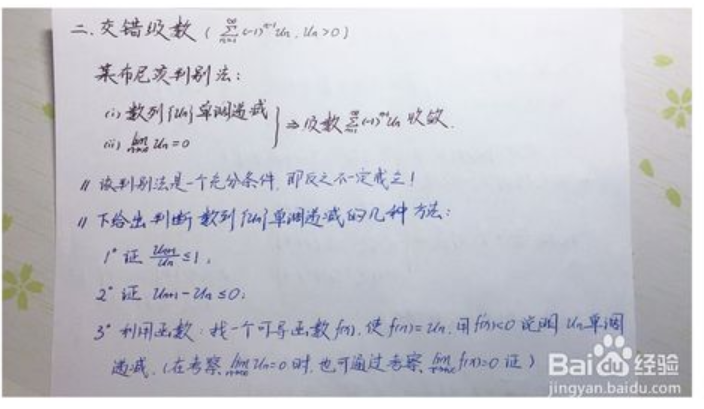 二. 交错级数 ( ∑_{n=1}^{∞} (-1)^{n-1} Un, Un>0 )
莱布尼茨判别法:
(i) 数列{Un}单调递减
(ii) lim_{n→∞} Un=0
} ⇒ 级数 ∑_{n=1}^{∞} (-1)^{n-1} Un 收敛.
// 该判别法是一个充分条件, 即反之不一定成立!
// 下给出判断数列{Un}单调递减的几种方法:
1° 证 Un+1/Un ≤1;
2° 证 Un+1-Un ≤0;
3° 利用函数: 找一个可导函数f(x), 使f(n)=Un, 用f'(x)<0 说明 Un单调
递减. (在考察 lim_{n→∞} Un=0 时, 也可通过考察 lim f(x)=0 证)
Baidu 经验
jingyan.baidu.com